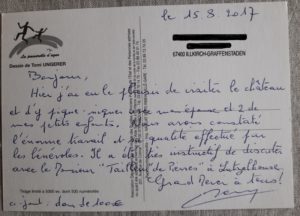 le 15.8.2017
La passerelle d'agen
Dessin de Tomi UNGERER
67400 ILLKIRCH-GRAFFENSTADEN
Bonjour,
Hier j'ai eu le plaisir de visiter le château
et d'y pique-niquer avec mon épouse et 2 de
mes petits enfants. Nous avons constaté
l'énorme travail et sa qualité effectué par
les bénévoles. Il a été très instructif de discuter
avec le Monsieur "Tailleur de Pierres" à Lutzelhouse
Grand Merci à tous!
Tirage limité à 5000 ex. dont 500 numérotés
ci-joint: don de 100€